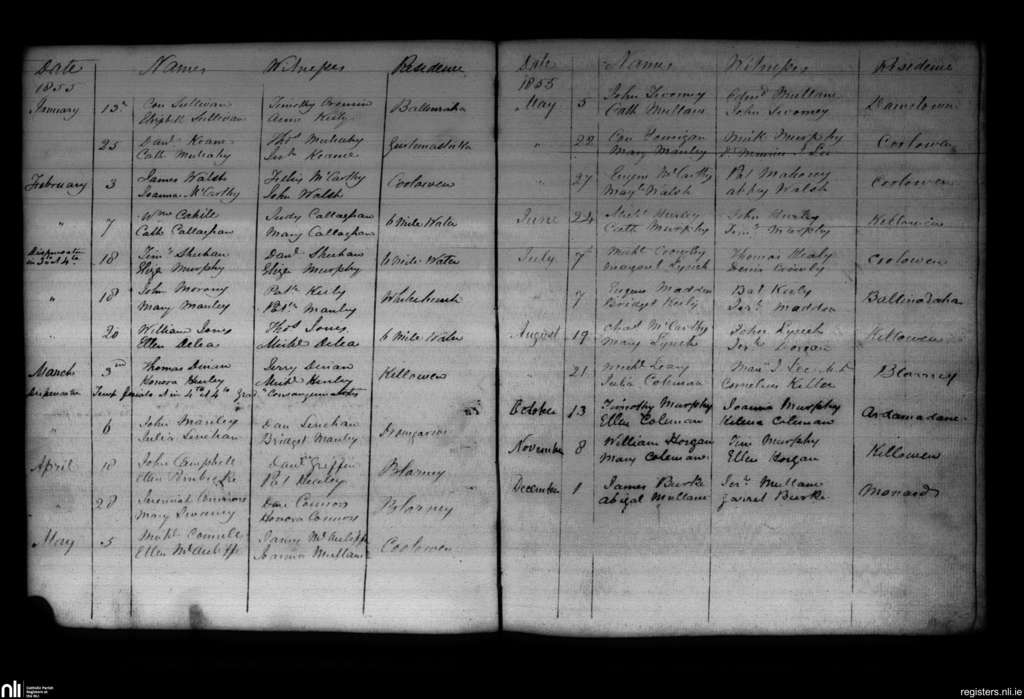 Date Names Witnesses Residence
1855
January 15th Con Sullivan Timothy Cronin Ballinraha
Elizabth Sullivan Anne Kiely
25 Danl Keane Thos Mulcahy
Cath Mulcahy Keane
February 3 James Walsh McCarthy Coolowen
Joanna McCarthy John Walsh
" 7 Wm Cahill Judy Callaghan 6 Mile Water
Cath Callaghan Mary Callaghan
Dispensatn 18 Timy Sheehan Danl Sheehan 6 Mile Water
in 3o et 4to Eliza Murphy Eliza Murphy
" 18 John Morony Patk Kiely Whitechurch
Mary Manley Patk Manley
" 20 William Jones Thos Jones 6 Mile Water
Ellen Delea Michl Delea
March 3rd Thomas Dinan Jerry Dinan Killowen
Honora Henley Michl Henley
in 4to et 4to Grad Consanguinitatis
" 6 John Manley Dan Linehan
Julia Linehan Bridget Manley
April 18 John Campbell Danl Griffin Blarney
Ellen Pat Healey
" 28 Jeremiah Connors Dan Connors Blarney
Mary Twomey Honora Connors
May 5 Michl Connell McAuliffe Coolowen
Ellen McAuliffe Joanna Mullane
Date Names Witnesses Residence
1855
May 5 John Twomey Edmd Mullane
Cath Mullane John Twomey
" 22 Con Mick Murphy Coolowen
Mary Manley
" 27 Eugene McCarthy Pat Mahony Coolowen
Mary Walsh Abby Walsh
June 24 Michl Hurley John Hurley Killowen
Cath Murphy Murphy
July 7th Michl Crowley Thomas Healy Coolowen
Margaret Lynch Denis Crowley
7 Eugene Madden Bat Kiely Ballinraha
Bridget Kiely Jery Madden
August 19 Chas McCarthy John Lynch Killowen
Mary Lynch Jery Horgan
" 21 Michl Leary Blarney
Julia Coleman Cornelius Keller
October 13 Timothy Murphy Joanna Murphy Ardamadane
Ellen Coleman Helena Coleman
November 8 William Horgan Tim Murphy Killowen
Mary Coleman Ellen Horgan
December 1 James Burke Jery Mullane Monard
Abigal Mullane Garret Burke
nli Catholic Parish Registers at the NLI
registers.nli.ie